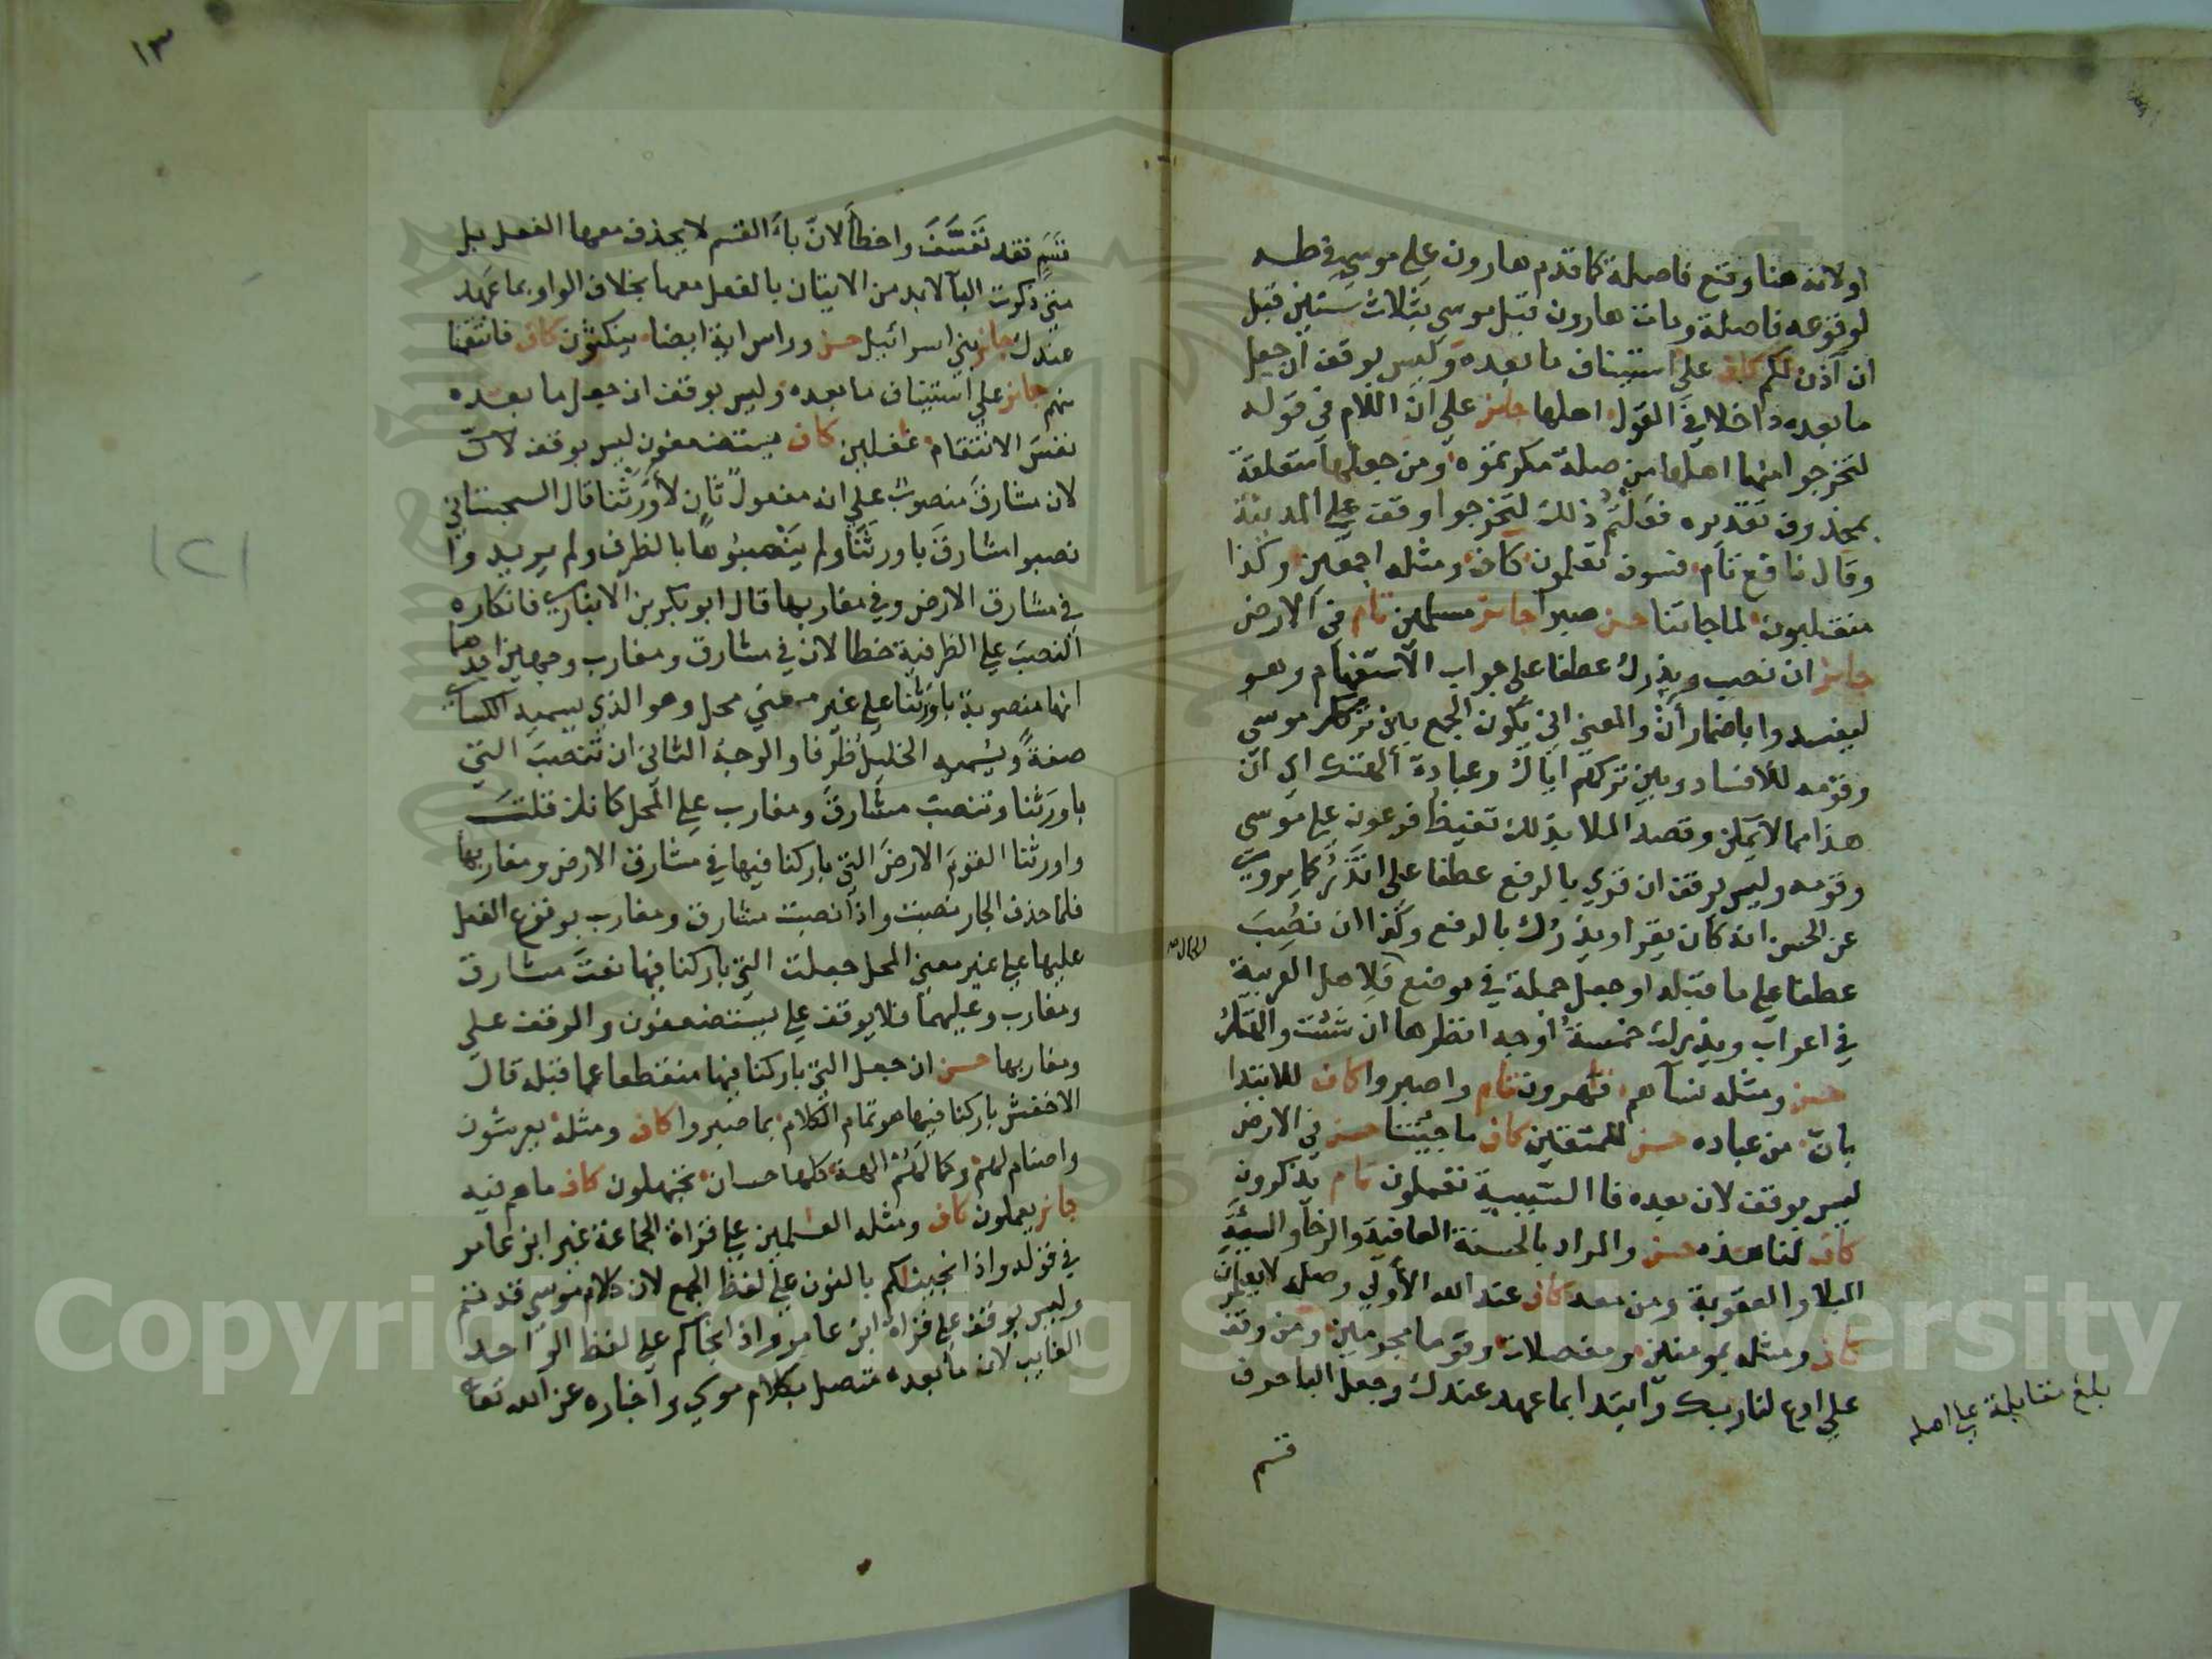 اولانه هنا وقع فاصلة كما قدم هارون على موسى في طه
لوقوعه فاصلة ومات هارون قبل موسى بثلاث سنين قبل
ان آذن لكم كاف على استيناف ما بعده وليس بوقف ان جعل
ما بعده داخلا في القول اهلها جائز على ان اللام في قوله
لتخرجوا منها اهلها من صلة مكرتموه ومن جعلها متعلقة
بمحذوف تقديره فعلتم ذلك لتخرجوا وقف على المدينة
وقال نافع تام فسوف تعلمون كاف ومثله اجمعين وكذا
منقلبون لما جاتنا حسن صبرا جائز مسلمين تام في الارض
جائز ان نصب ويذرك عطفا على جواب الاستفهام وهو
ليفسدوا باضمار أن والمعنى اني يكون الجمع بين تركك موسى
وقومه للافساد وبين تركهم اياك وعبادة ألهتك اي ان
هذا مما لا يمكن وقصد الملا بذلك تغيظ فرعون على موسى
وقومه وليس بوقف ان قري بالرفع عطفا على اتذر كما يروى
عن الحسن انه كان يقرا ويذرك بالرفع وكذا ان نصب
عطفا على ما قبله او جعل جملة في موضع الحال فلاهل العربية
في اعراب ويذرك خمسة أوجه انظرها ان شئت والهتك
حسن ومثله نسآهم قهرون تام واصبروا كاف للابتدا
بان من عباده حسن للمتقين كاف ما جيتنا حسن في الارض
ليس بوقف لان بعده فا السببية تعملون تام يذكرون
كاف لنا هذه حسن والمراد بالحسنة العافية والرخآ والسيئة
البلا والعقوبة ومن معه كاف عند الله الأولى وصله لا يعلمون
كاف ومثله بمومنين ومفصلات وقوما مجرمين ومن وقف
على ادع لنا ربك وابتدا بما عهد عندك وجعل البا حرف
قسم
بلغ مقابلة على اصله
١٣
١٢١
قسم فقد تعسف واخطأ لان باء القسم لا يحذف معها الفعل بل
متى ذكرت البآ لابد من الاتيان بالفعل معها بخلاف الواو بما عهد
عندك جائز بني اسرائيل حسن وراس اية ايضا ينكثون كاف فانتقمنا
منهم جائز على استيناف ما بعده وليس بوقف ان جعل ما بعده
نفس الانتقام غفلين كاف يستضعفون ليس بوقف
لان مشارق منصوب على انه مفعول ثان لأورثنا قال السجستاني
نصبوا مشارق باورثنا ولم ينصبوها بالظرف ولم يريدوا
في مشارق الارض وفي مغاربها قال ابو بكر بن الانباري فانكاره
النصب على الظرفية خطا لان في مشارق ومغارب وجهين احدهما
انها منصوبة باورثنا على غير معنى محل وهو الذي يسميه الكساى
صفة ويسميه الخليل ظرفا والوجه الثاني ان تنصب التي
باورثنا وتنصب مشارق ومغارب على المحل كانك قلت
واورثنا القوم الارض التي باركنا فيها في مشارق الارض ومغاربها
فلما حذف الجار نصبت واذا نصبت مشارق ومغارب بوقوع الفعل
عليها على غير معنى المحل جعلت التي باركنا فيها نعت مشارق
ومغارب وعليهما فلا يوقف على يستضعفون والوقف على
ومغاربها حسن ان جعل التي باركنا فيها منقطعا عما قبله قال
الاخفش باركنا فيها هو تمام الكلام بما صبروا كاف ومثله يعرشون
واصنام لهم وكما لهم الهة كلها حسان تجهلون كاف ماهم فيه
جائز يعملون كاف ومثله العلمين على قراة الجماعة غير ابن عامر
في قوله واذ انجيناكم بالنون على لفظ الجمع لان كلام موسى قد تم
وليس بوقف على قراة ابن عامر واذ انجاكم على لفظ الواحد
الغايب لان ما بعده متصل بكلام موسى واخباره عن الله تعا
Copyright © King Saud University
1957